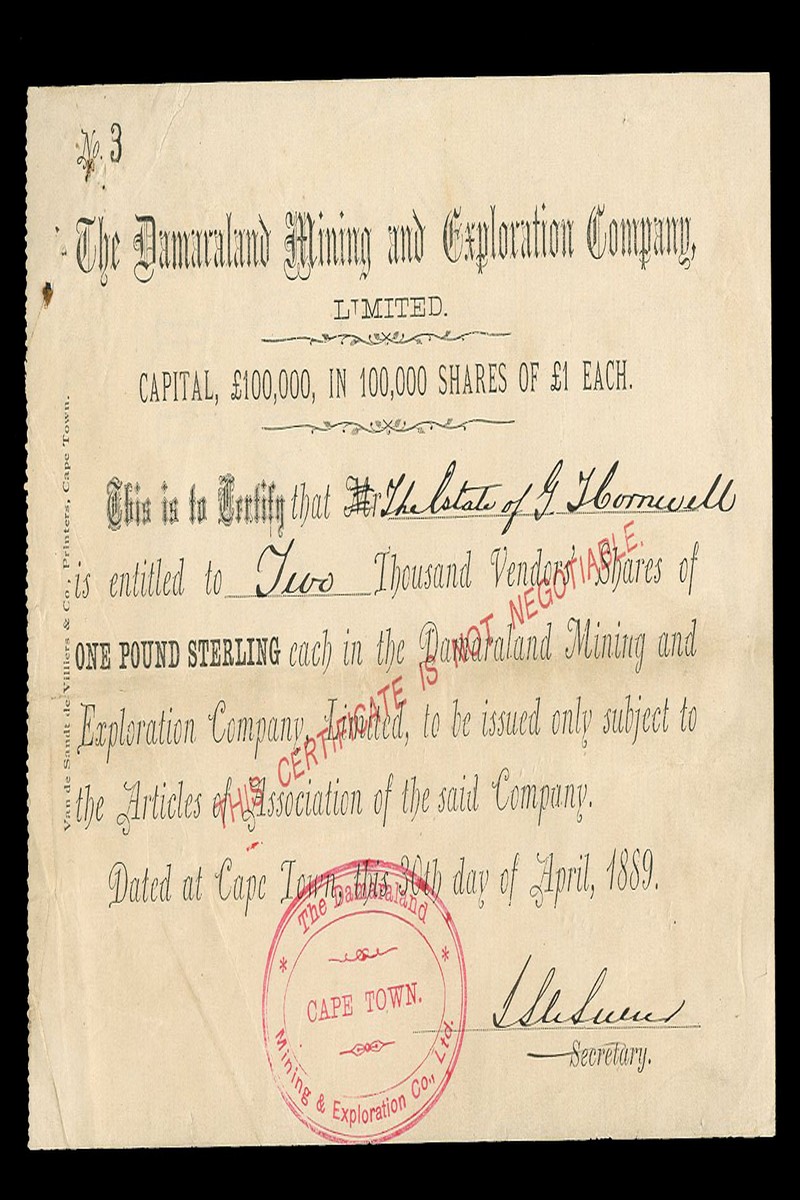 No. 3
The Damaraland Mining and Exploration Company,
LIMITED.
CAPITAL, £100,000, IN 100,000 SHARES OF £1 EACH.
This is to Certify that Mr The Estate of G. T Cornwell
is entitled to Two Thousand Vendors' Shares of
ONE POUND STERLING each in the Damaraland Mining and
Exploration Company, Limited, to be issued only subject to
the Articles of Association of the said Company.
Dated at Cape Town, this 30th day of April, 1889.
THIS CERTIFICATE IS NOT NEGOTIABLE.
The Damaraland
CAPE TOWN.
Mining & Exploration Co., Ltd.
Secretary.
Van de Sandt de Villiers & Co., Printers, Cape Town.